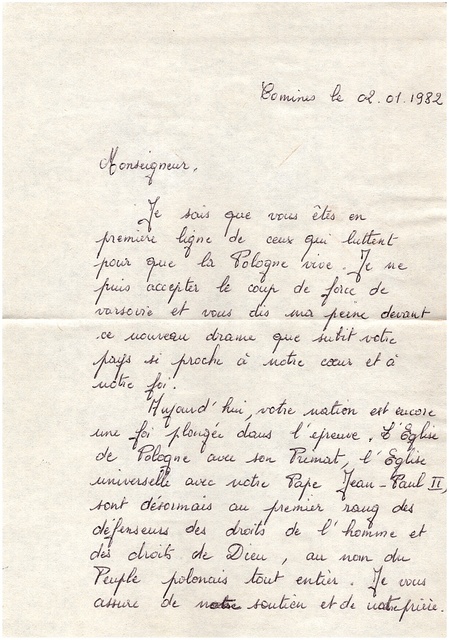 Comines le 02.01.1982
Monseigneur,
Je sais que vous êtes en
première ligne de ceux qui luttent
pour que la Pologne vive. Je ne
puis accepter le coup de force de
varsovie et vous dis ma peine devant
ce nouveau drame que subit votre
pays si proche à notre cœur et à
notre foi.
Aujourd'hui, votre nation est encore
une foi plongée dans l'épreuve. L'Eglise
de Pologne avec son Primat, l'Eglise
universelle avec notre Pape Jean-Paul II,
sont désormais au premier rang des
défenseurs des droits de l'homme et
des droits de Dieu, au nom du
Peuple polonais tout entier. Je vous
assure de soutien et de prière.